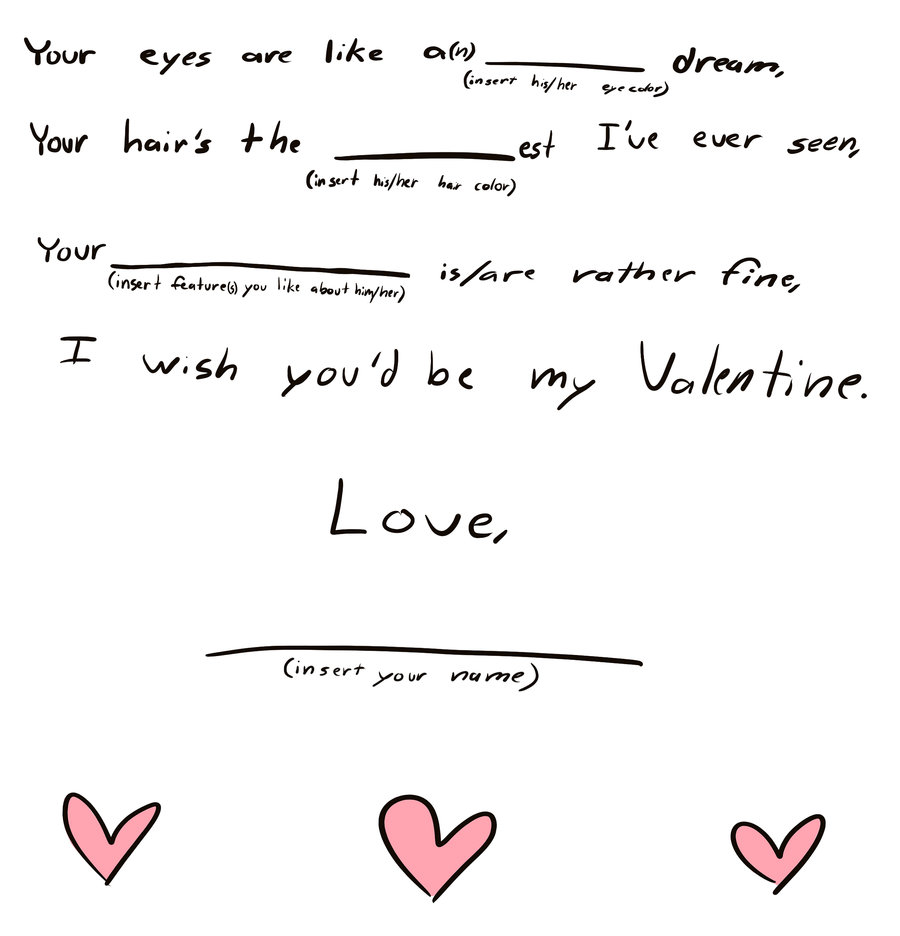 Your eyes are like a(n) ________ dream,
(insert his/her eye color)
Your hair's the ________est I've ever seen,
(insert his/her hair color)
Your ________ is/are rather fine,
(insert feature(s) you like about him/her)
I wish you'd be my Valentine.
Love,
________
(insert your name)